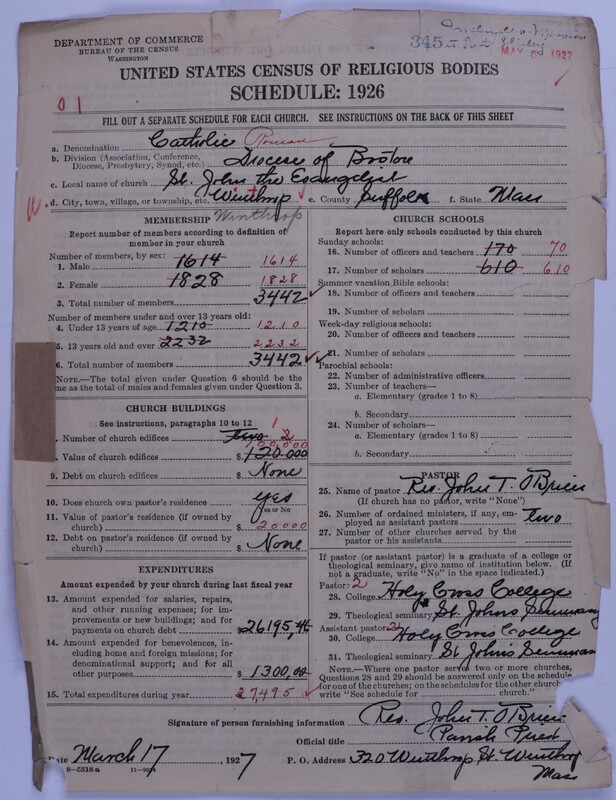 DEPARTMENT OF COMMERCE
BUREAU OF THE CENSUS
WASHINGTON
345
MAY 5 1927
UNITED STATES CENSUS OF RELIGIOUS BODIES
SCHEDULE: 1926
01
FILL OUT A SEPARATE SCHEDULE FOR EACH CHURCH. SEE INSTRUCTIONS ON THE BACK OF THIS SHEET
a. Denomination Catholic Roman
b. Division (Association, Conference, Diocese, Presbytery, Synod, etc.) Diocese of Boston
c. Local name of church St. John the Evangelist
d. City, town, village, or township, etc. Winthrop e. County Suffolk f. State Mass
Winthrop
MEMBERSHIP
Report number of members according to definition of
member in your church
Number of members, by sex:
1. Male 1614 1614
2. Female 1828 1828
3. Total number of members 3442
Number of members under and over 13 years old:
4. Under 13 years of age 1210 1210
5. 13 years old and over 2232 2232
6. Total number of members 3442
NOTE.—The total given under Question 6 should be the
same as the total of males and females given under Question 3.
CHURCH BUILDINGS
See instructions, paragraphs 10 to 12
Number of church edifices two 2
Value of church edifices $ 120.000
9. Debt on church edifices $ None
10. Does church own pastor's residence? yes
Yes or No
11. Value of pastor's residence (if owned by
church) $ 20000
12. Debt on pastor's residence (if owned by
church) $ None
EXPENDITURES
Amount expended by your church during last fiscal year
13. Amount expended for salaries, repairs,
and other running expenses; for im-
provements or new buildings; and for
payments on church debt $ 26195,45
14. Amount expended for benevolences, in-
cluding home and foreign missions; for
denominational support; and for all
other purposes $ 1300,00
15. Total expenditures during year $ 27495
CHURCH SCHOOLS
Report here only schools conducted by this church
Sunday schools:
16. Number of officers and teachers 170 70
17. Number of scholars 610 610
Summer vacation Bible schools:
18. Number of officers and teachers
19. Number of scholars
Week-day religious schools:
20. Number of officers and teachers
21. Number of scholars
Parochial schools:
22. Number of administrative officers
23. Number of teachers—
a. Elementary (grades 1 to 8)
b. Secondary
24. Number of scholars—
a. Elementary (grades 1 to 8)
b. Secondary
PASTOR
25. Name of pastor Rev. John T. O'Brien
(If church has no pastor, write "None")
26. Number of ordained ministers, if any, em-
ployed as assistant pastors two
27. Number of other churches served by the
pastor or his assistants
If pastor (or assistant pastor) is a graduate of a college or
theological seminary, give name of institution below. (If
not a graduate, write "No" in the space indicated.)
Pastor: 2
28. College Holy Cross College
29. Theological seminary St. Johns Seminary
Assistant pastor: 2
30. College Holy Cross College
31. Theological seminary St John's Seminary
NOTE.—Where one pastor served two or more churches,
Questions 28 and 29 should be answered only on the schedule
for one of the churches; on the schedules for the other church
write "See schedule for church."
Signature of person furnishing information Rev. John T. O'Brien
Official title Parish Priest
Date March 17 1927 P. O. Address 320 Winthrop St. Winthrop
Mass
8-5318 a